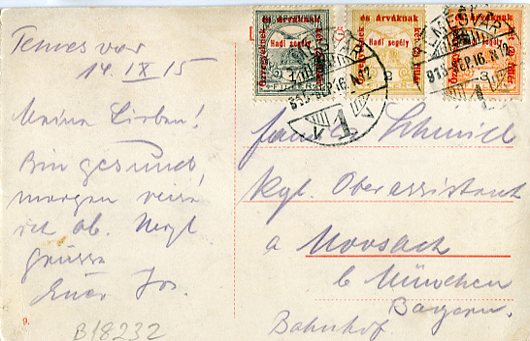 Temesvar
14. IX 15
Meine Lieben!
Bin gesund,
morgen reise
ich ab. Herzl
Grüsse
Euer Jos.
9.
B18232
Özvegyeknek és Árváknak Hadi segély
Özvegyeknek és Árváknak Hadi segély
Özvegyeknek és Árváknak Hadi segély
TEMESVÁR
915 SEP. 16. N 12
1
TEMESVÁR
915 SEP. 16. N 12
Schmid
Kgl. Oberassistent
a Moosach
b München
Bayern.
Bahnhof